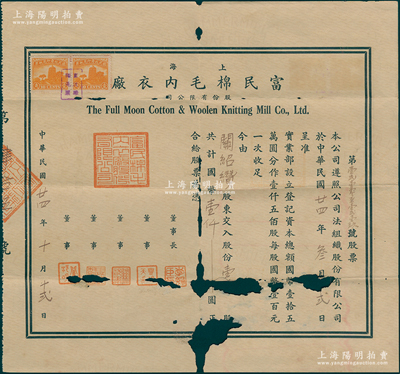 上海陽明拍賣
www.yangmingauction.com
上海
富民棉毛內衣廠
股份有限公司
The Full Moon Cotton & Woolen Knitting Mill Co., Ltd.
號股票
本公司遵照公司法組織股份有限公司
於中華民國廿四年叁月弍日
呈准
實業部設立登記資本總額國幣壹拾五
萬圓分作壹仟五佰股每股國幣壹百元
一次收足
今由
關紹
股東交入股份壹
共計國
壹仟
圓正
合給股票
憑
董事長
董事
董事
董事
董事
中華民國廿四年十月十弍日
上海陽明拍賣
www.yangmingauction.com